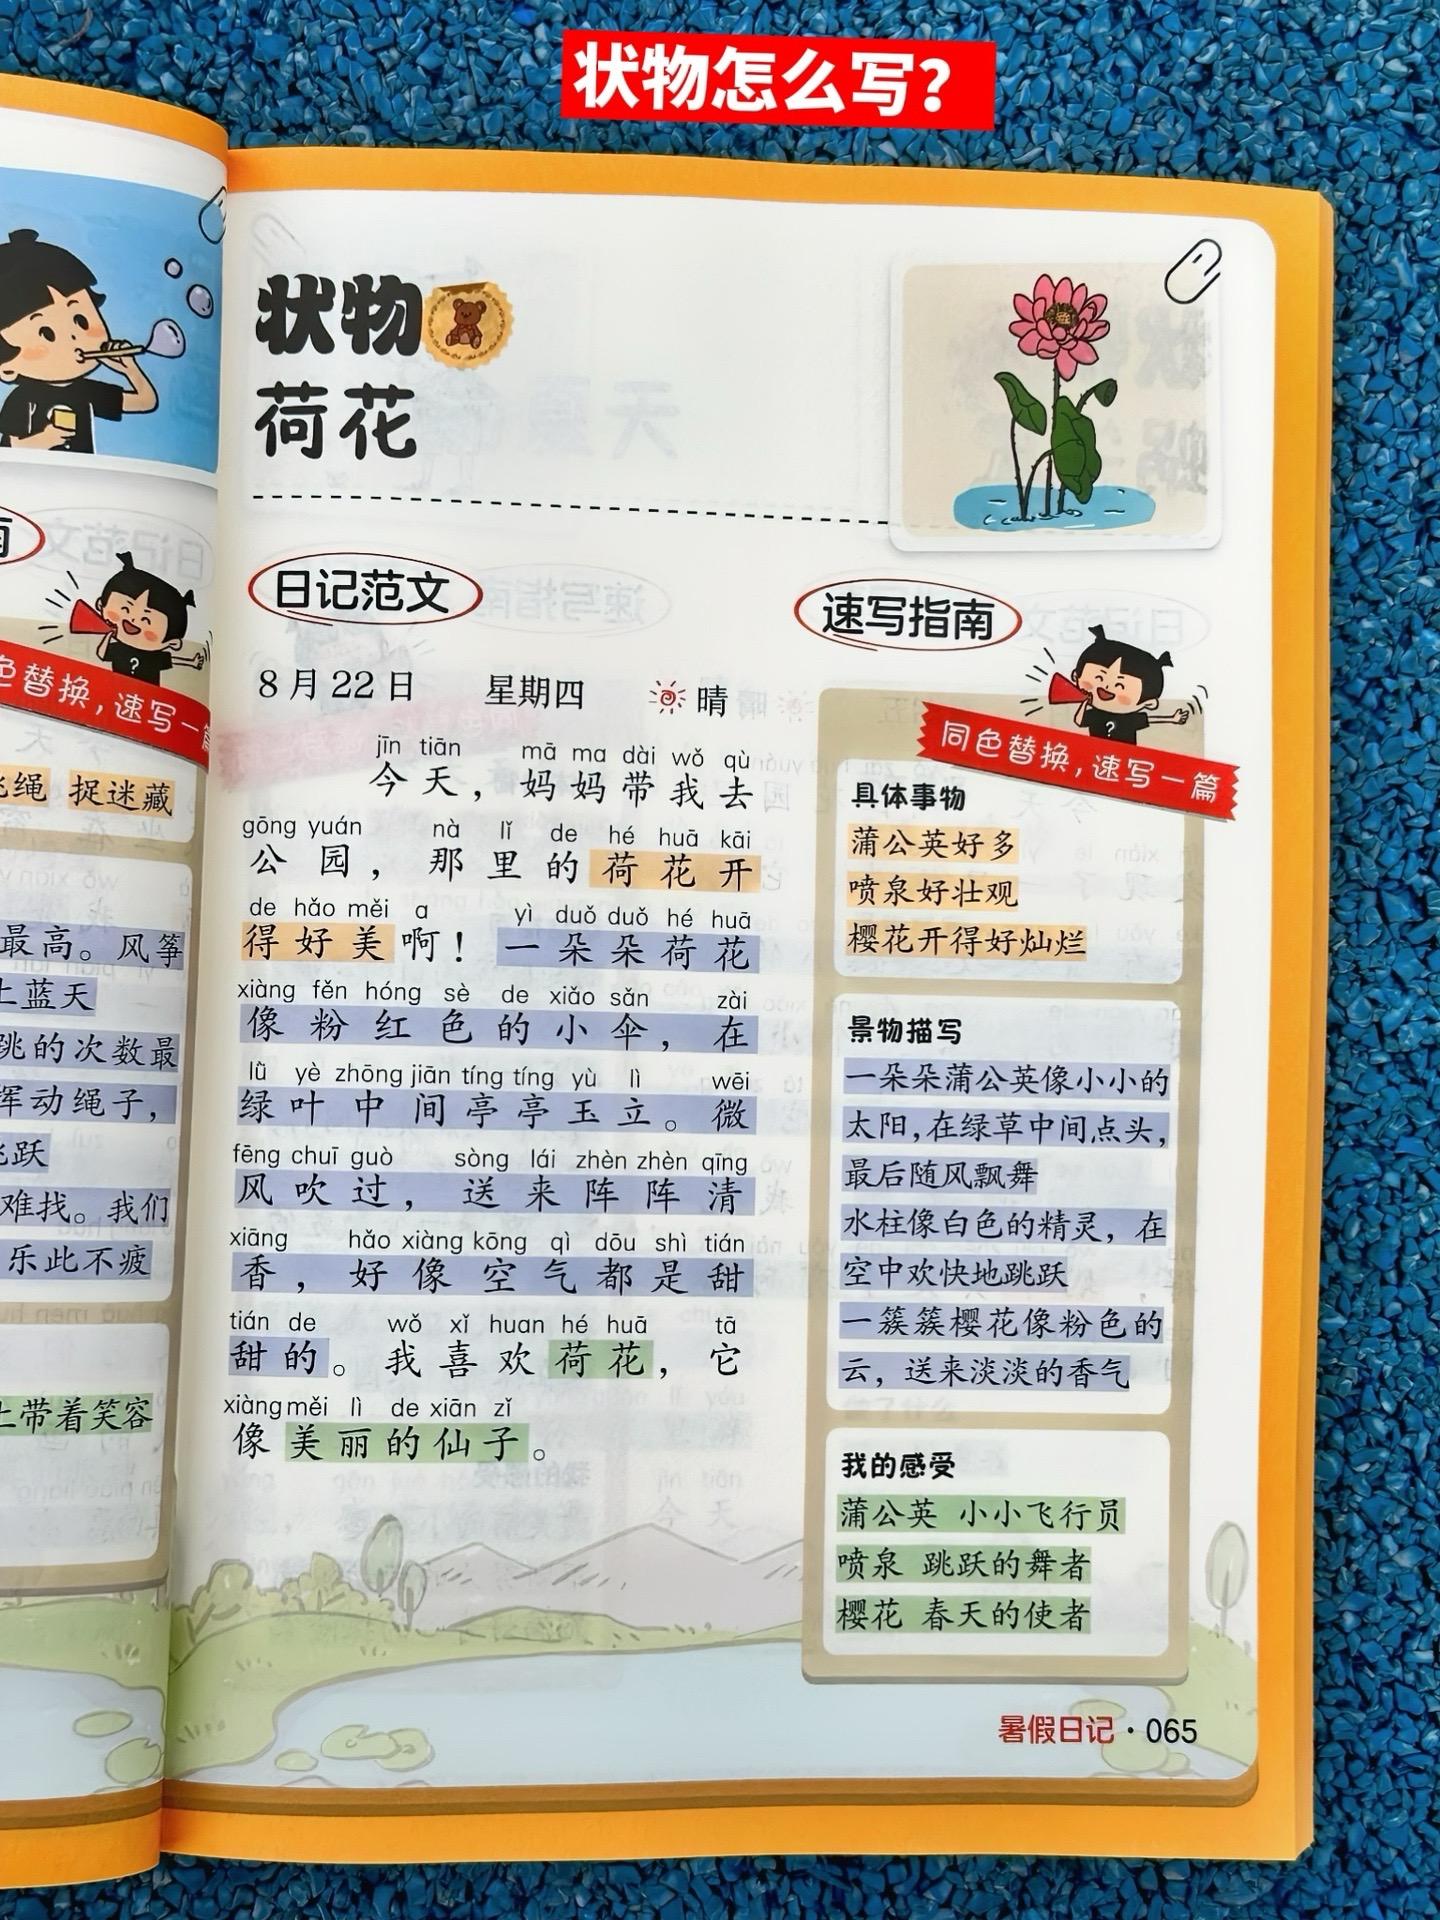 状物怎么写？
南
色替换，速写一篇
跳绳 捉迷藏
最高。风筝
上蓝天
跳的次数最
挥动绳子，
跳跃
难找。我们
乐此不疲
上带着笑容
状物
荷花
日记范文
8月22日 星期四 晴
jīn tiān mā ma dài wǒ qù
今天，妈妈带我去
gōng yuán nà lǐ de hé huā kāi
公园，那里的荷花开
de hǎo měi a yì duǒ duǒ hé huā
得好美啊！一朵朵荷花
xiàng fěn hóng sè de xiǎo sǎn zài
像粉红色的小伞，在
lǜ yè zhōng jiān tíng tíng yù lì wēi
绿叶中间亭亭玉立。微
fēng chuī guò sòng lái zhèn zhèn qīng
风吹过，送来阵阵清
xiāng hǎo xiàng kōng qì dōu shì tián
香，好像空气都是甜
tián de wǒ xǐ huan hé huā tā
甜的。我喜欢荷花，它
xiàng měi lì de xiān zǐ
像美丽的仙子。
速写指南
同色替换，速写一篇
具体事物
蒲公英好多
喷泉好壮观
樱花开得好灿烂
景物描写
一朵朵蒲公英像小小的
太阳，在绿草中间点头，
最后随风飘舞
水柱像白色的精灵，在
空中欢快地跳跃
一簇簇樱花像粉色的
云，送来淡淡的香气
我的感受
蒲公英 小小飞行员
喷泉 跳跃的舞者
樱花 春天的使者
暑假日记·065